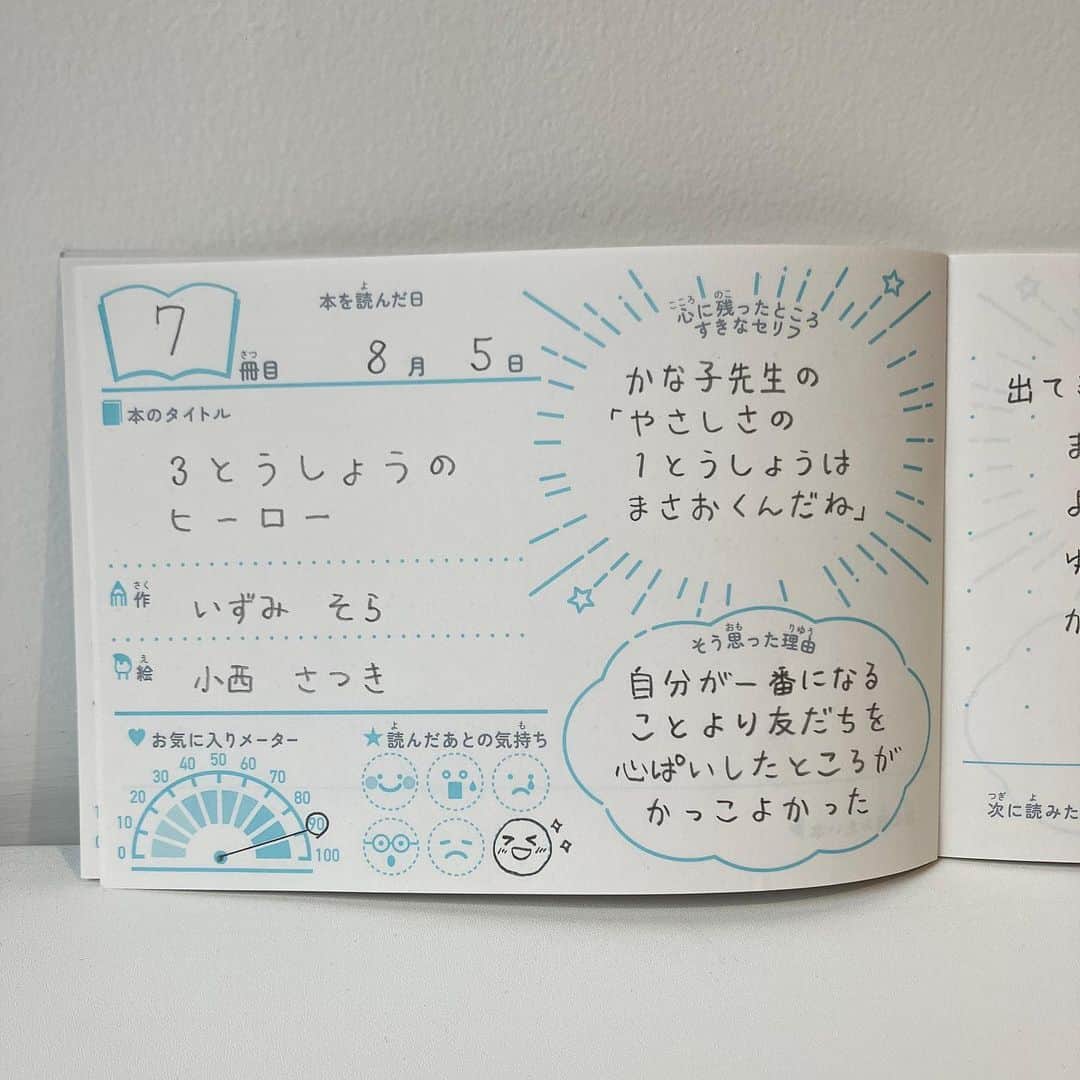 7 冊目
さつ
本を読んだ日
よ
8月 5日
本のタイトル
3とうしょうの
ヒーロー
さく
作 いずみ そら
え
絵 小西 さつき
お気に入りメーター
0 10 20 30 40 50 60 70 80 90 100
よ も
★読んだあとの気持ち
こころ のこ
心に残ったところ
すきなセリフ
かな子先生の
「やさしさの
1とうしょうは
まさおくんだね」
おも りゆう
そう思った理由
自分が一番になる
ことより友だちを
心ぱいしたところが
かっこよかった
出て
ま
よ
ゆ
か
つぎ よ
次に読みた